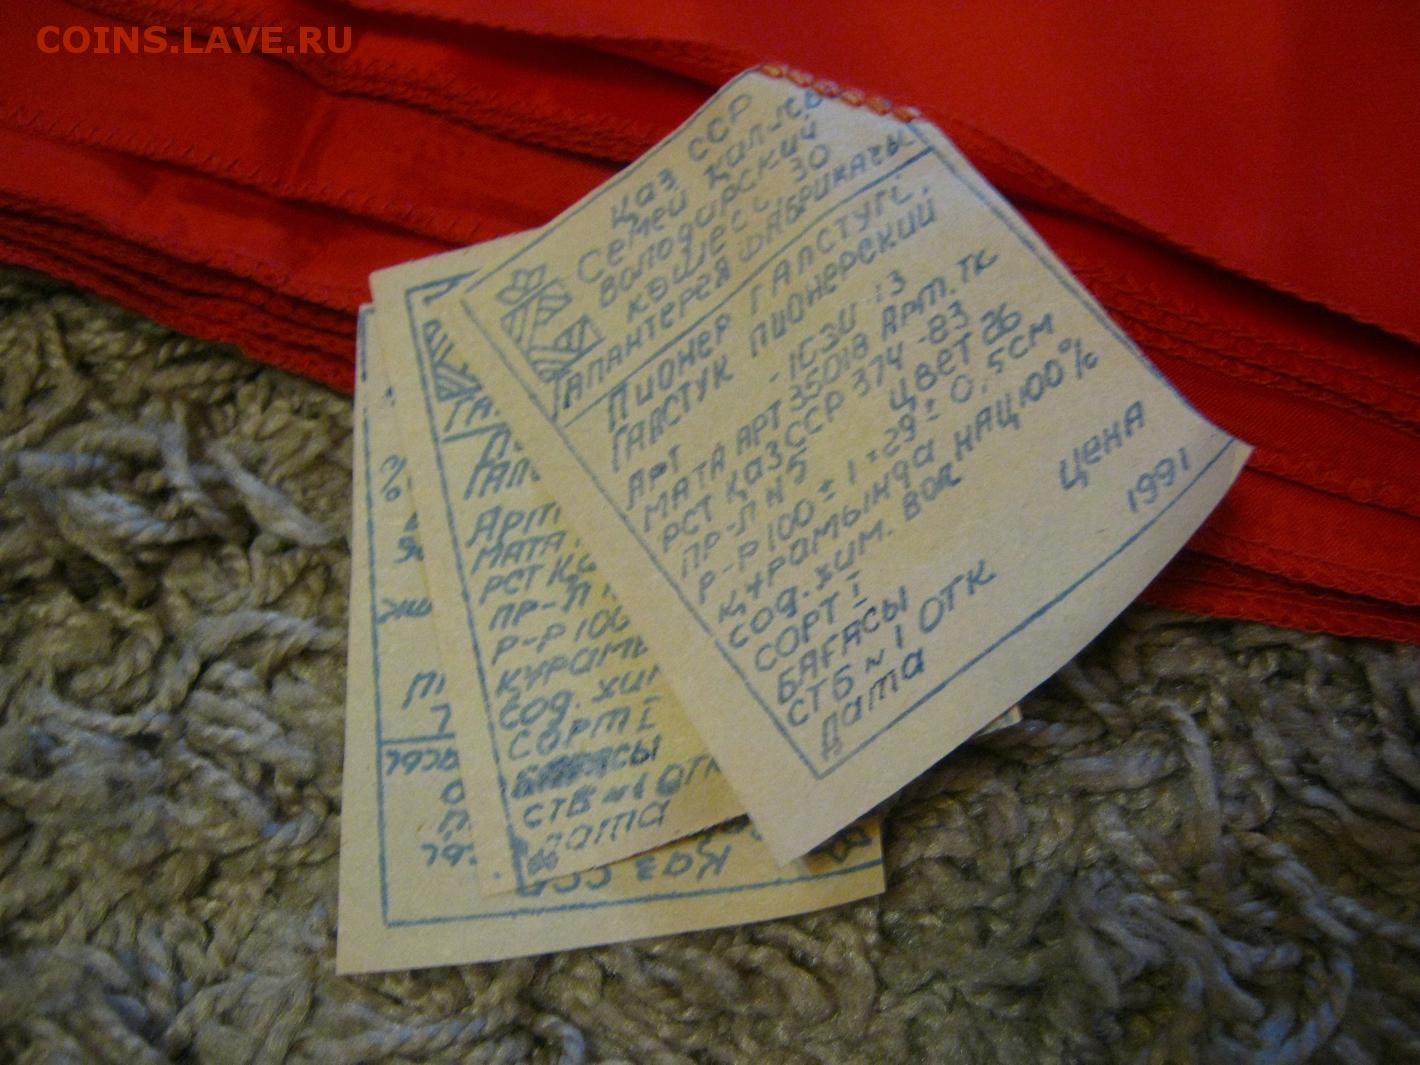 COINS.LAVE.RU
Қаз ССР
Семей қаласы
Володарский
көшесі 30
Галантерея фабрикасы
Пионер галстугі.
Галстук пионерский
Арт -1С3U-13
Мата арт 35018 Арт. тк
РСТ Қаз ССР 374-83
Пр-л N5 цвет 26
Р-Р 100 ± 1 × 29 ± 0,5 см
Құрамында нац 100%
Сод. хим. вол
Сорт I
Бағасы цена
СТБ N 1 ОТК 1991
Дата
Га
П
Галс
Арт
Мата
РСТ Қа
Пр-л
Р-Р 100
Құрамы
Сод. хим
Сорт I
Бағасы
СТБ N 1 ОТК
Дата
Қаз ССР